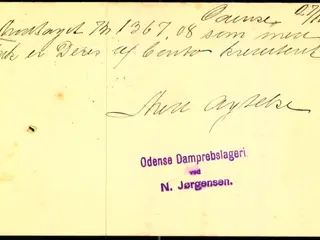 Odense
Modtaget Kr 1367,08 som med
Tak er Deres Conto krediteret
Med Agtelse
Odense Damprebslageri
ved
N. Jørgensen.